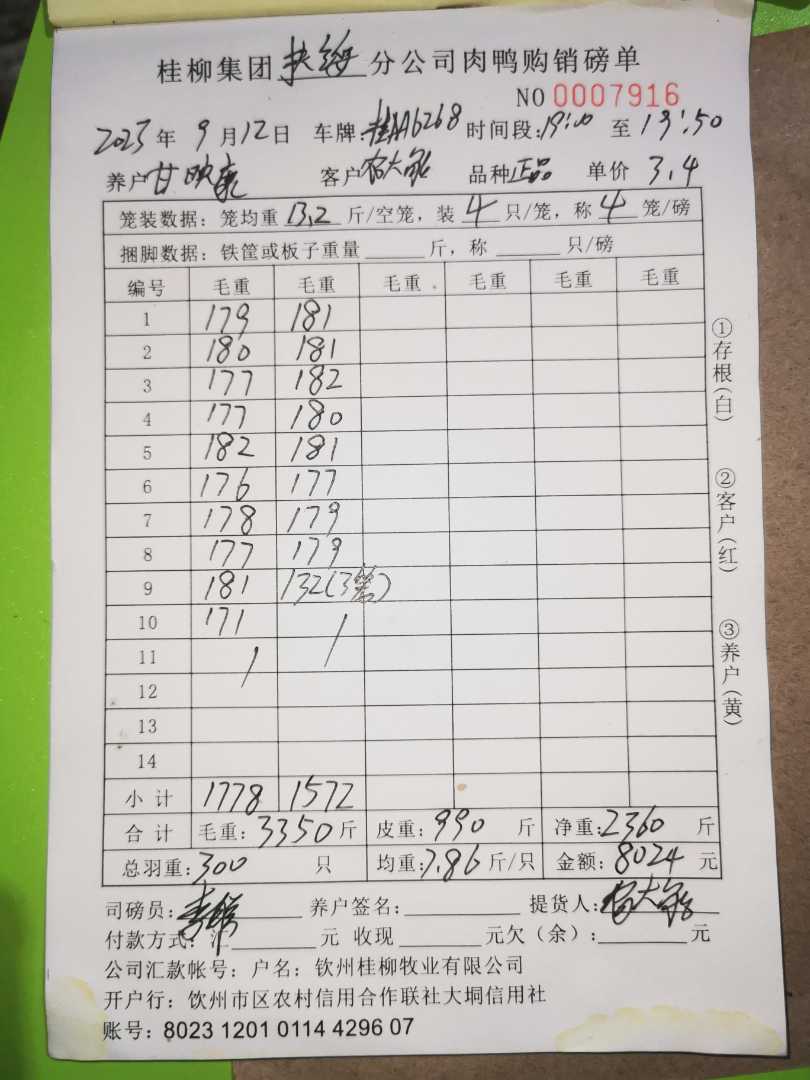 桂柳集团扶绥分公司肉鸭购销磅单
NO 0007916
2023年9月12日 车牌:桂AA6268 时间段:19:00 至 19:50
养户 甘 客户 农大 品种 正品 单价 3.4
笼装数据：笼均重 13.2 斤/空笼，装 4 只/笼，称 4 笼/磅
捆脚数据：铁筐或板子重量 斤，称 只/磅
编号 毛重 毛重 毛重 毛重 毛重 毛重
1 179 181
2 180 181
3 177 182
4 177 180
5 182 181
6 176 177
7 178 179
8 177 179
9 181 132(3笼)
10 171 /
11 /
12
13
14
小计 1778 1572
合计 毛重:3350斤 皮重:990 斤 净重:2360 斤
总羽重:300 只 均重:7.86斤/只 金额:8024 元
司磅员:李 养户签名: 提货人:农大
付款方式:汇 元 收现 元欠（余）: 元
公司汇款帐号：户名：钦州桂柳牧业有限公司
开户行：饮州市区农村信用合作联社大垌信用社
账号：8023 1201 0114 4296 07
①存根(白)
②客户(红)
③养户(黄)